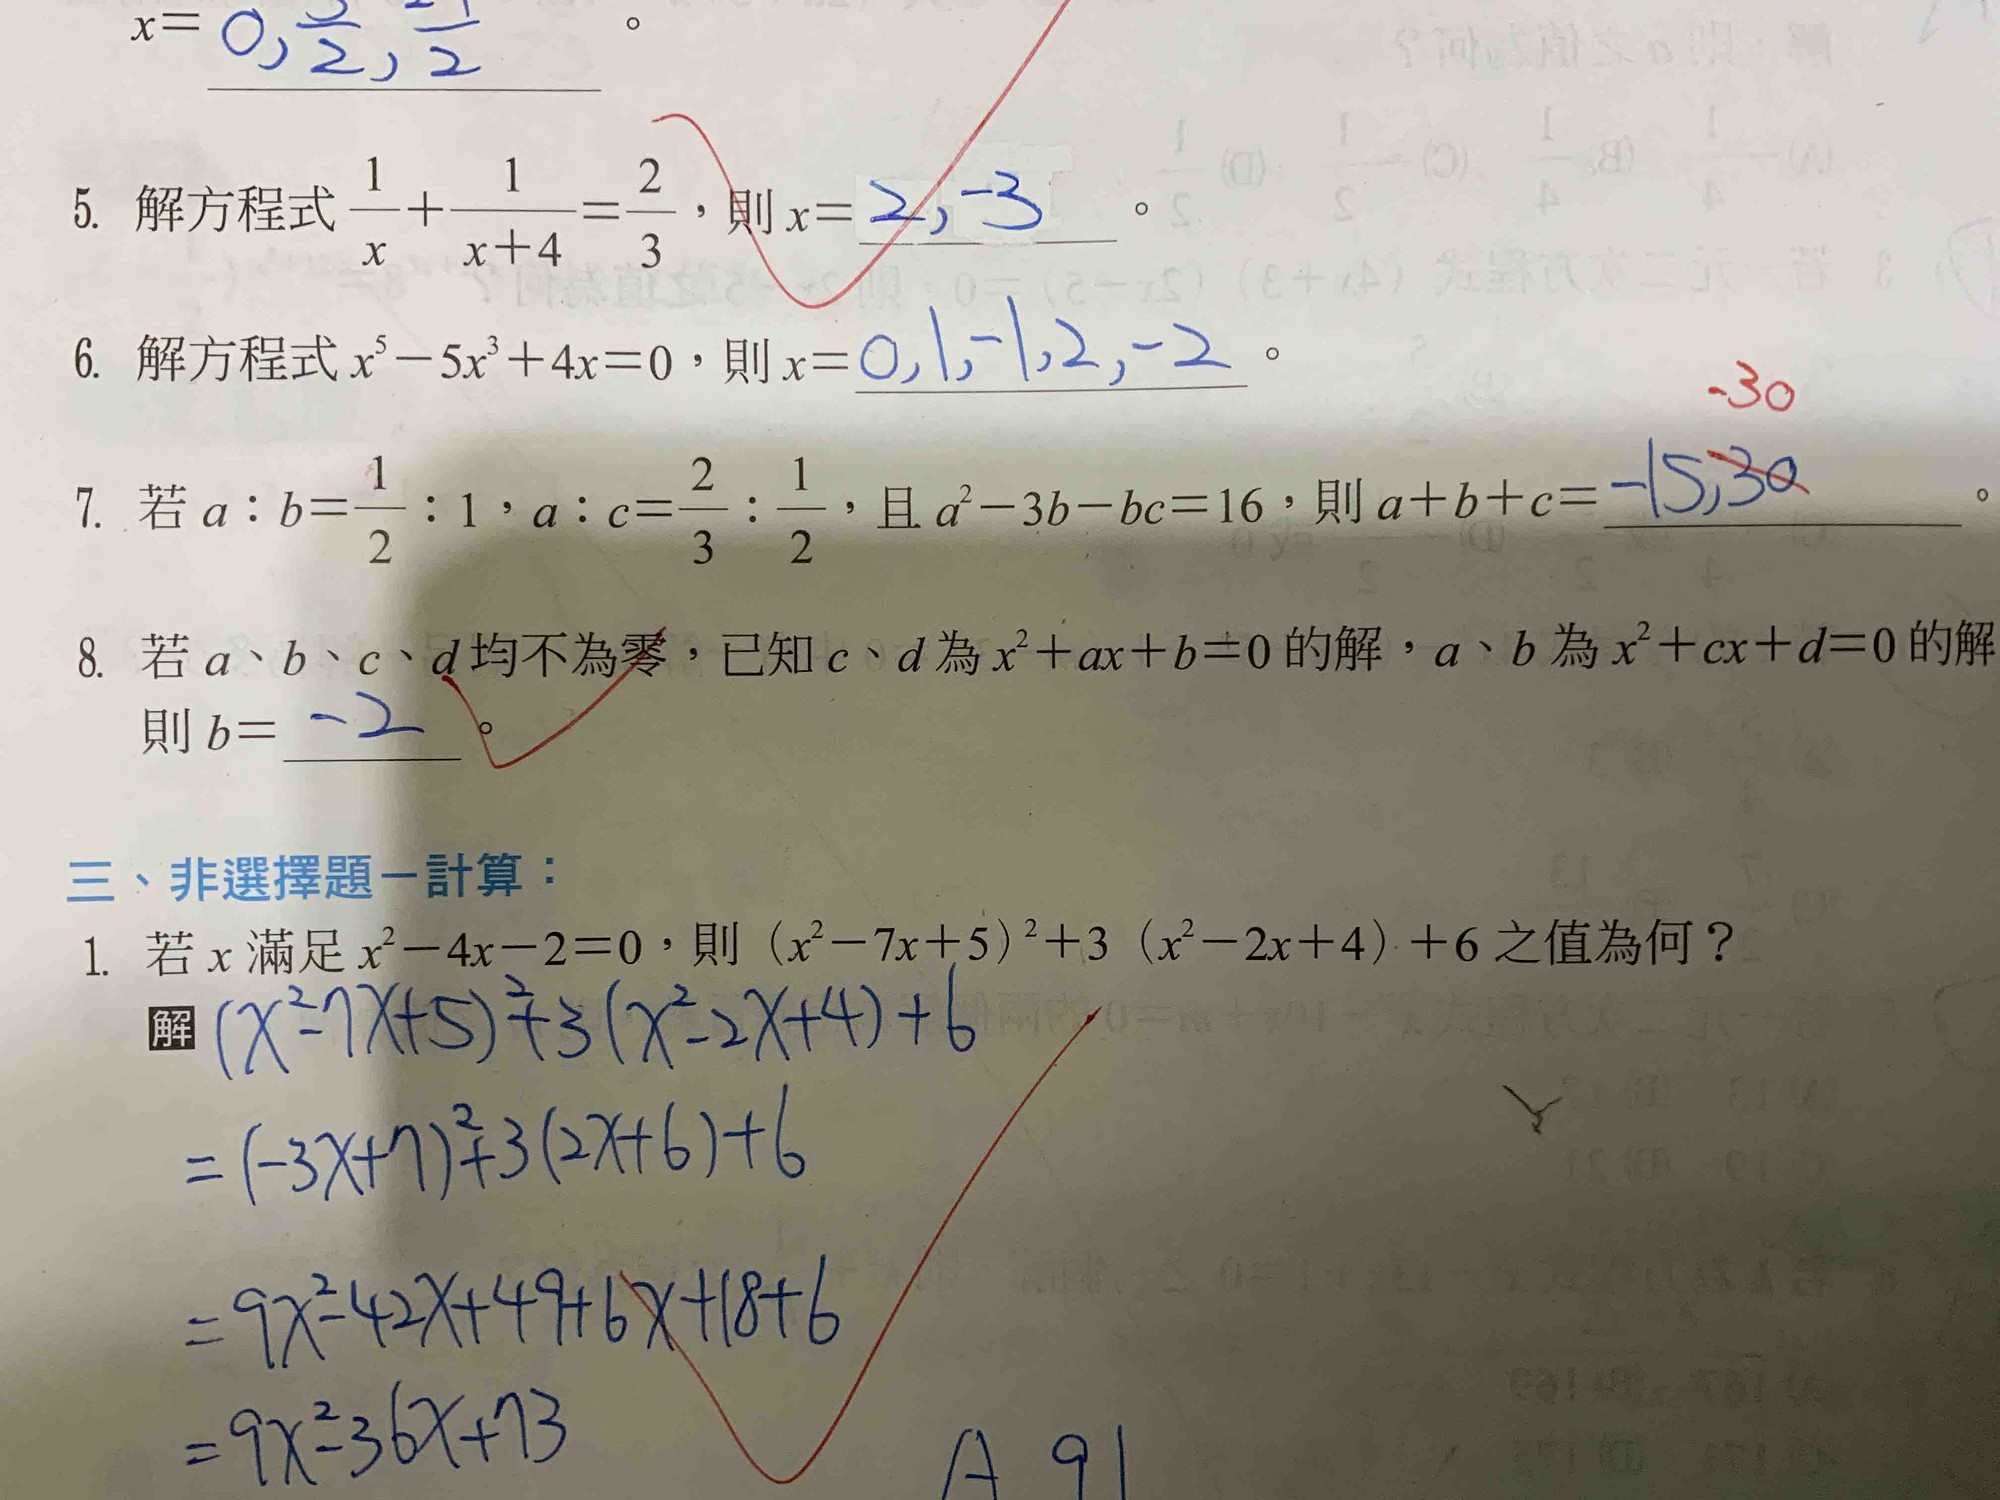 x=0, 3/2, -1/2。
5. 解方程式 1/x + 1/(x+4) = 2/3,則 x= 2, -3 。
6. 解方程式 x⁵-5x³+4x=0,則 x= 0, 1, -1, 2, -2 。
-30
7. 若 a:b=1/2:1,a:c=2/3:1/2,且 a²-3b-bc=16,則 a+b+c= -15, 30 。
8. 若 a、b、c、d 均不為零,已知 c、d 為 x²+ax+b=0 的解,a、b 為 x²+cx+d=0 的解
則 b= -2 。
三、非選擇題-計算:
1. 若 x 滿足 x²-4x-2=0,則(x²-7x+5)²+3(x²-2x+4)+6 之值為何?
解 (x²-7x+5)²+3(x²-2x+4)+6
=(-3x+7)²+3(2x+6)+6
=9x²-42x+49+6x+18+6
=9x²-36x+73
A 91